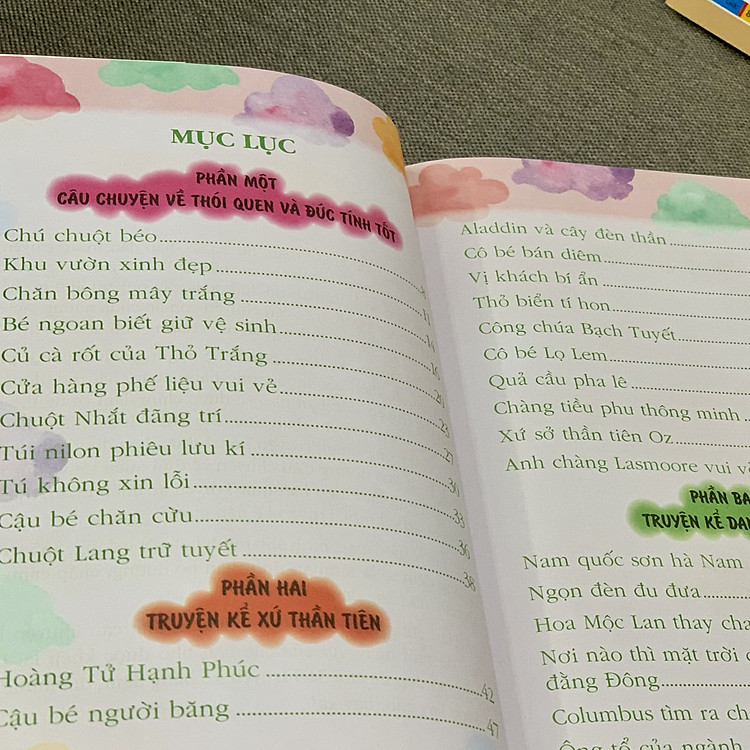 MỤC LỤC
PHẦN MỘT
CÂU CHUYỆN VỀ THÓI QUEN VÀ ĐỨC TÍNH TỐT
Chú chuột béo
Khu vườn xinh đẹp
Chăn bông mây trắng
Bé ngoan biết giữ vệ sinh
Củ cà rốt của Thỏ Trắng
Cửa hàng phế liệu vui vẻ
Chuột Nhắt đãng trí
Túi nilon phiêu lưu kí
Tú không xin lỗi
Cậu bé chăn cừu
Chuột Lang trữ tuyết 38
PHẦN HAI
TRUYỆN KỂ XỨ THẦN TIÊN
Hoàng Tử Hạnh Phúc 42
Cậu bé người băng 47
Aladdin và cây đèn thần
Cô bé bán diêm
Vị khách bí ẩn
Thỏ biển tí hon
Công chúa Bạch Tuyết
Cô bé Lọ Lem
Quả cầu pha lê
Chàng tiều phu thông minh
Xứ sở thần tiên Oz
Anh chàng Lasmoore vui
PHẦN BA
TRUYỆN KỂ
Nam quốc sơn hà Nam
Ngọn đèn đu đưa
Hoa Mộc Lan thay cha
Nơi nào thì mặt trời
đằng Đông
Columbus tìm ra
Ông tổ của ngành